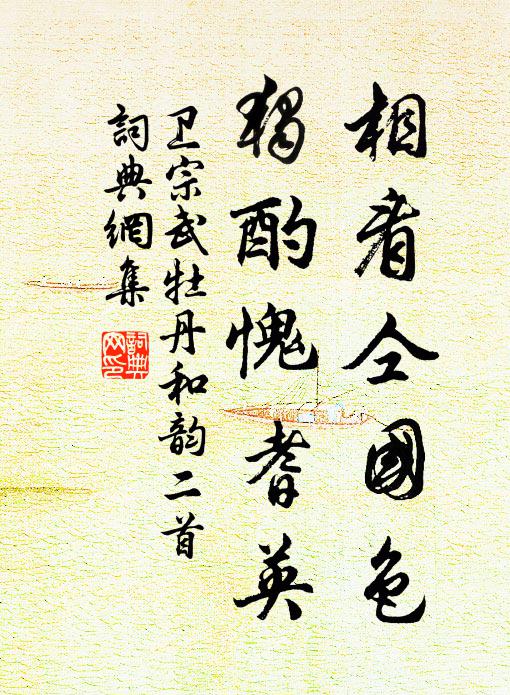 相看仝國色
獨酌愧耆英
卫宗武牡丹和韵二首
詞典網集
詞典网印